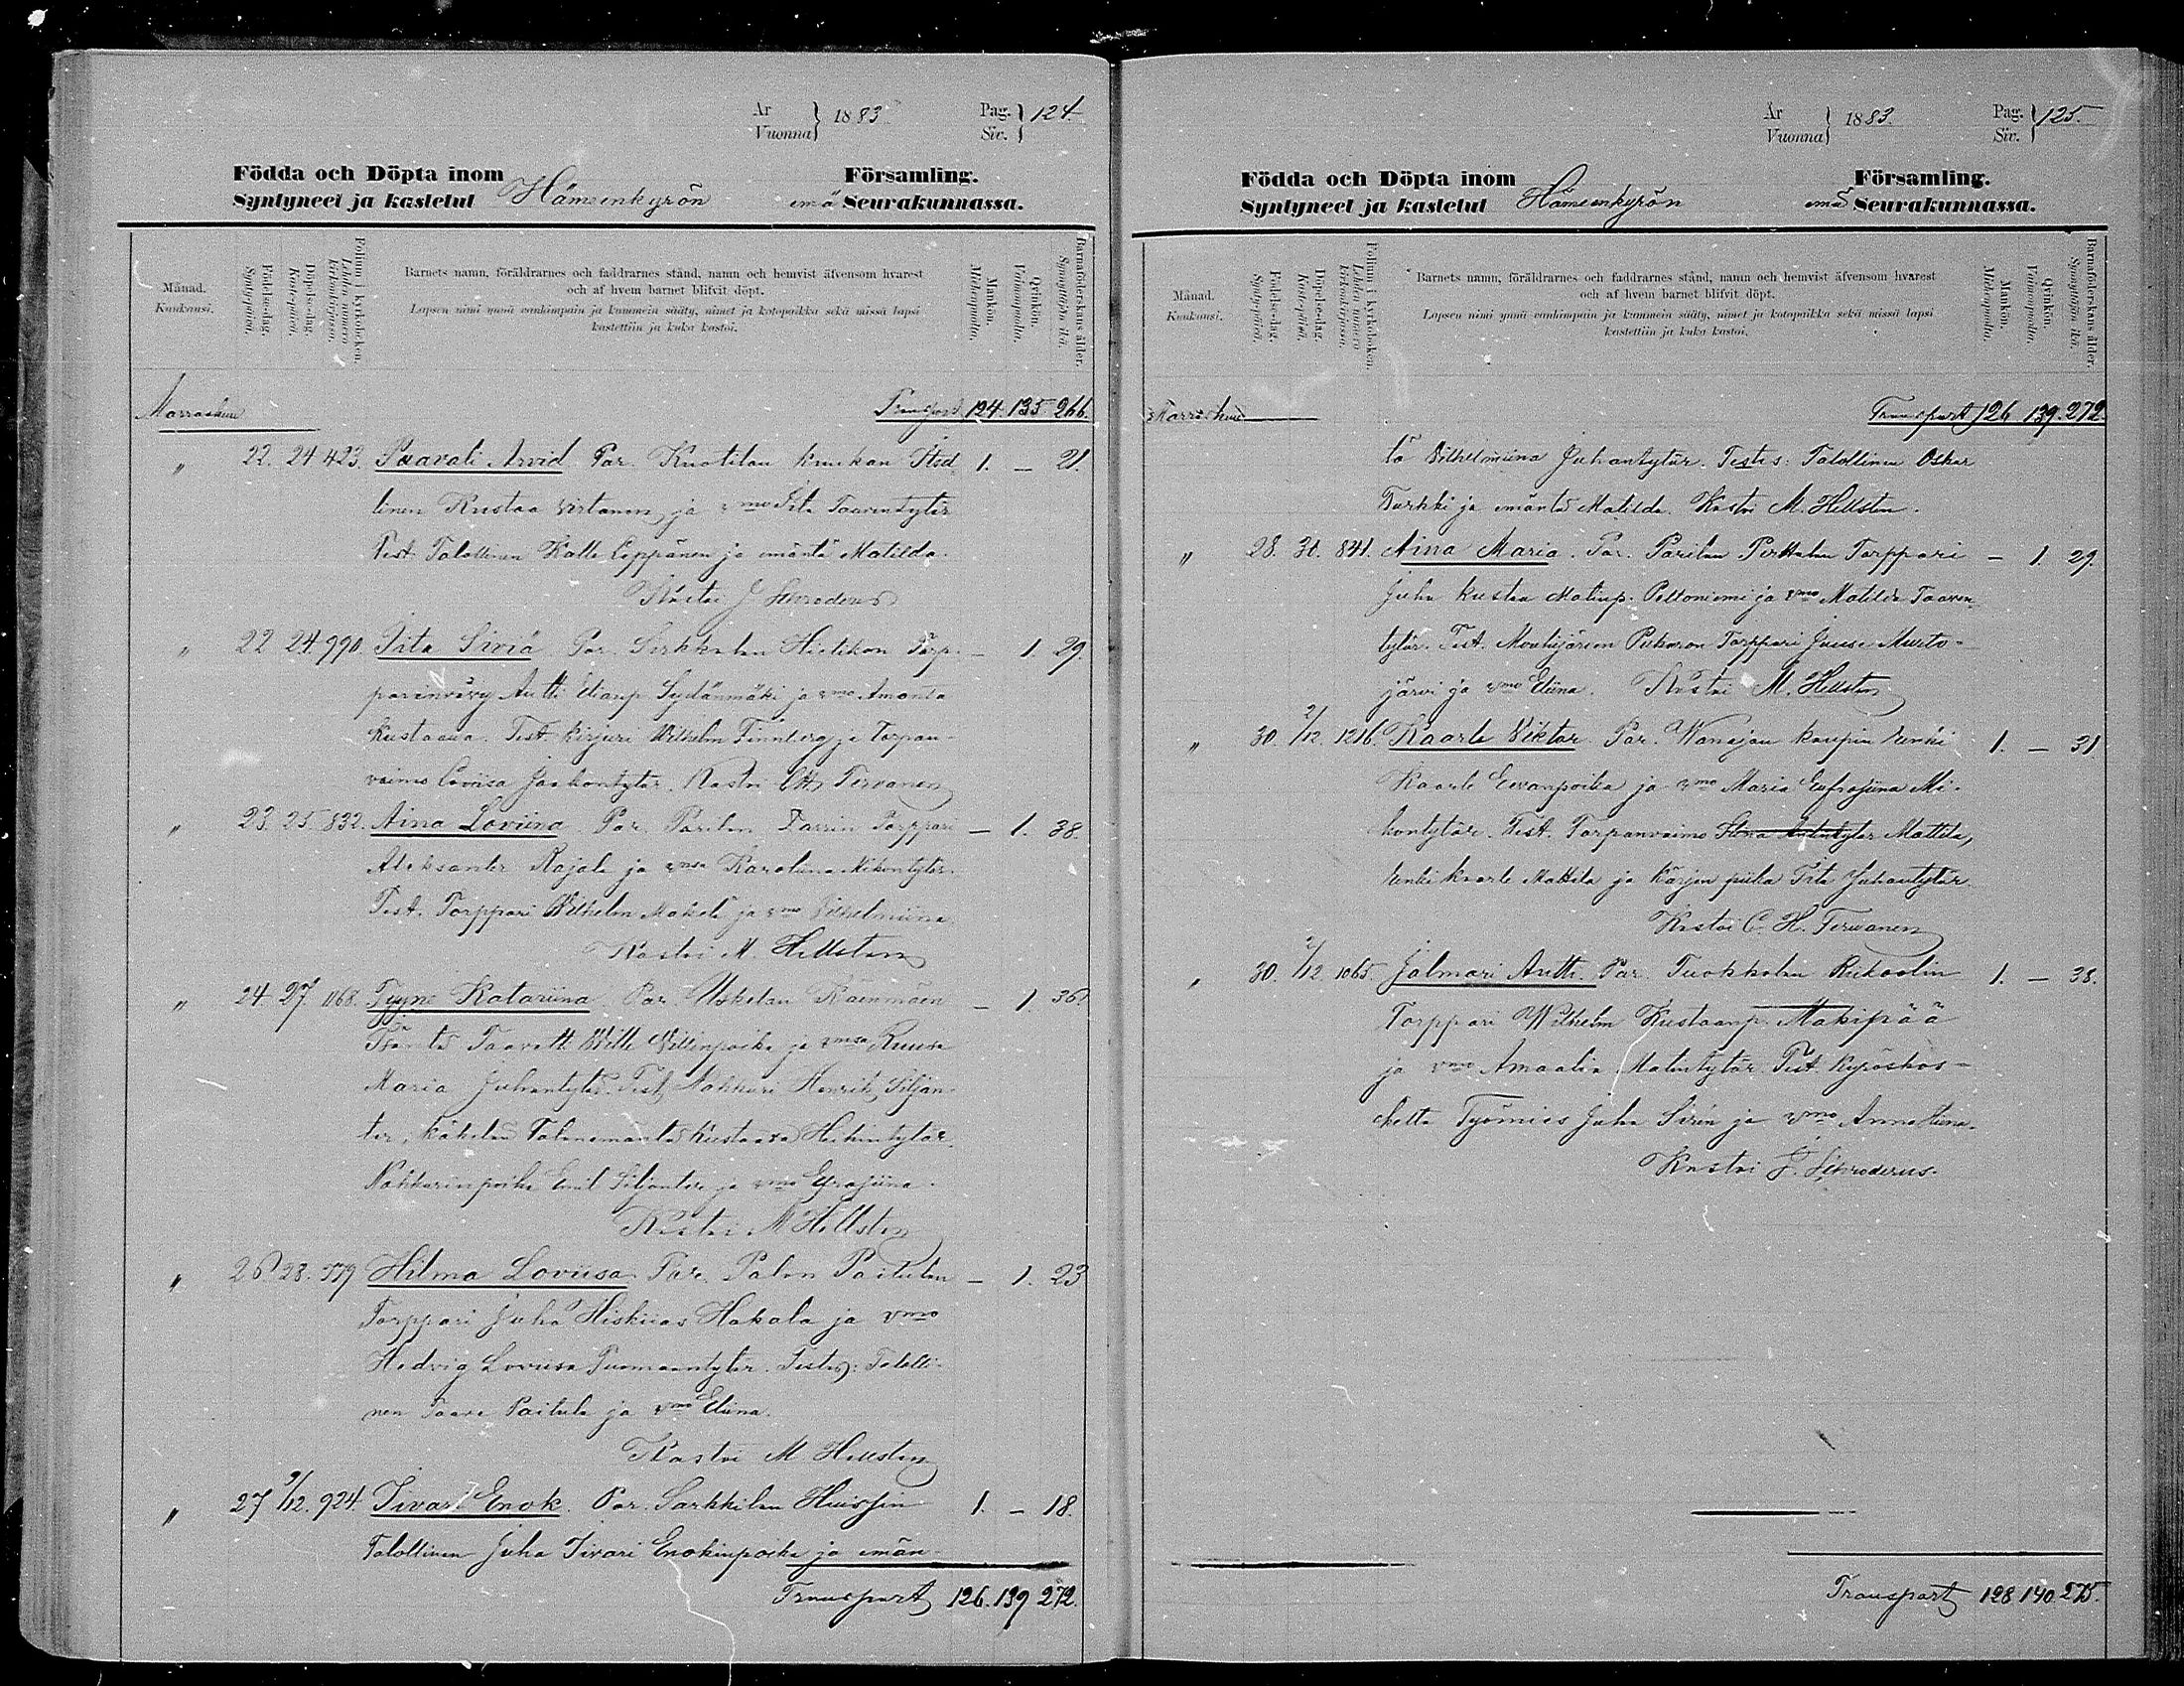 År
Vuonna } 1883
Pag.
Siv. } 124.
Födda och Döpta inom Församling.
Syntyneet ja kastetut Hämeenkyrön emä Seurakunnassa.
Månad.
Kuukausi.
Födelse-dag.
Syntypäivä.
Döpelse-dag.
Kastepäivä.
Folium i kyrkoboken.
Lehden numero kirkonkirjassa.
Barnets namn, föräldrarnes och faddrarnes stånd, namn och hemvist äfvensom hvarest
och af hvem barnet blifvit döpt.
Lapsen nimi ynnä vanhimpain ja kummein sääty, nimet ja kotopaikka sekä missä lapsi
kastettiin ja kuka kastoi.
Mankön.
Miehenpuolia.
Qvinkön.
Vaimonpuolia.
Barnaföderskans ålder.
Synnyttäjän ikä.
Marraskuu Transport 124. 135. 266.
" 22. 24 423. Paavali Arvid Par. Kuotilan 1. — 21.
linen Kustaa Virtanen ja vmo Iita Taavintytär
Test. Talollinen Kalle Leppänen ja emäntä Matilda.
Kastoi J. Schroderus
" 22 24 990. Iita Siviä. Par. Sirkkalan Hietikon Torp- — 1. 29.
parinvävy Antti Sydänmäki ja vmo Amanda
Kustaava. Test. kirjuri Wilhelm Finnberg ja Torpan-
vaimo Loviisa Jaakontytär. Kastoi Tervanen
" 23. 25. 832. Aina Loviina. Par. Parilan Torppari — 1. 38.
Aleksanter Rajala ja vmsa Karoliina Mikontytär.
Test. Torppari Wilhelm Mäkelä ja vmo Vilhelmiina
Kastoi M. Hellsten
" 24 27 1068. Tyyne Katariina. Par. Uskelan — 1. 36.
Taavetti Wille Willinpoika ja vmsa Ruusa
Maria Juhantytär. Test. Nahkuri Henrik Siljan-
ter, Talonemäntä Kustaava Heikintytär,
Nahkurinpoika Emil Siljanter ja vmo Efrasiina.
Kastoi M Hellsten
" 26 28. 779 Hilma Loviisa. Par. Palon Paitulan — 1. 23
Torppari Juha Hiskias Hakala ja vmo
Hedvig Loviisa Tuomaantytär. Testes: Talolli-
nen Taave Paitula ja vmo Eliina.
Kastoi M. Hellsten
" 27 2/12. 924. Iivari Enok. Par. Sarkkilan Huissin 1. — 18.
Talollinen Juha Iivari Enokinpoika ja emän-
Transport 126. 139 272.
År
Vuonna } 1883.
Pag.
Siv. } 125.
Födda och Döpta inom Församling.
Syntyneet ja kastetut Hämeenkyrön emä Seurakunnassa.
Månad.
Kuukausi.
Födelse-dag.
Syntypäivä.
Döpelse-dag.
Kastepäivä.
Folium i kyrkoboken.
Lehden numero kirkonkirjassa.
Barnets namn, föräldrarnes och faddrarnes stånd, namn och hemvist äfvensom hvarest
och af hvem barnet blifvit döpt.
Lapsen nimi ynnä vanhimpain ja kummein sääty, nimet ja kotopaikka sekä missä lapsi
kastettiin ja kuka kastoi.
Mankön.
Miehenpuolia.
Qvinkön.
Vaimonpuolia.
Barnaföderskans ålder.
Synnyttäjän ikä.
Marraskuu Transport 126 139. 272.
tä Vilhelmiina Juhantytär. Testes: Talollinen Oskar
Turkki ja emäntä Matilda. Kastoi M. Hellsten.
" 28. 30. 841. Aina Maria. Par. Parilan Perttulan Torppari — 1. 29.
Juha Kustaa Matinp. Peltoniemi ja vmo Matilda Taaven-
tytär. Test. Mouhijärven Torppari Juuse Murto-
järvi ja vmo Eliina. Kastoi M. Hellsten
" 30. 2/12. 1216. Kaarle Viktor. Par. Wanajan kaupin renki 1. — 31
Kaarle Eevanpoika ja vmo Maria Eufrosiina Mi-
kontytär. Test. Torpanvaimo Mattila,
renki Kaarle Mattila ja Kärjen piika Iita Juhantytär.
Kastoi C. H. Tervanen
" 30. 2/12. 1065. Jalmari Antti. Par. Tuokkolan 1. — 38.
Torppari Wilhelm Kustaanp. Mäkipää
ja vmo Amaalia Matintytär. Test. Kyröskos-
kelta Työmies Juha Sirén ja vmo Anna Miina.
Kastoi J. Schroderus.
Transport 128 140. 275.